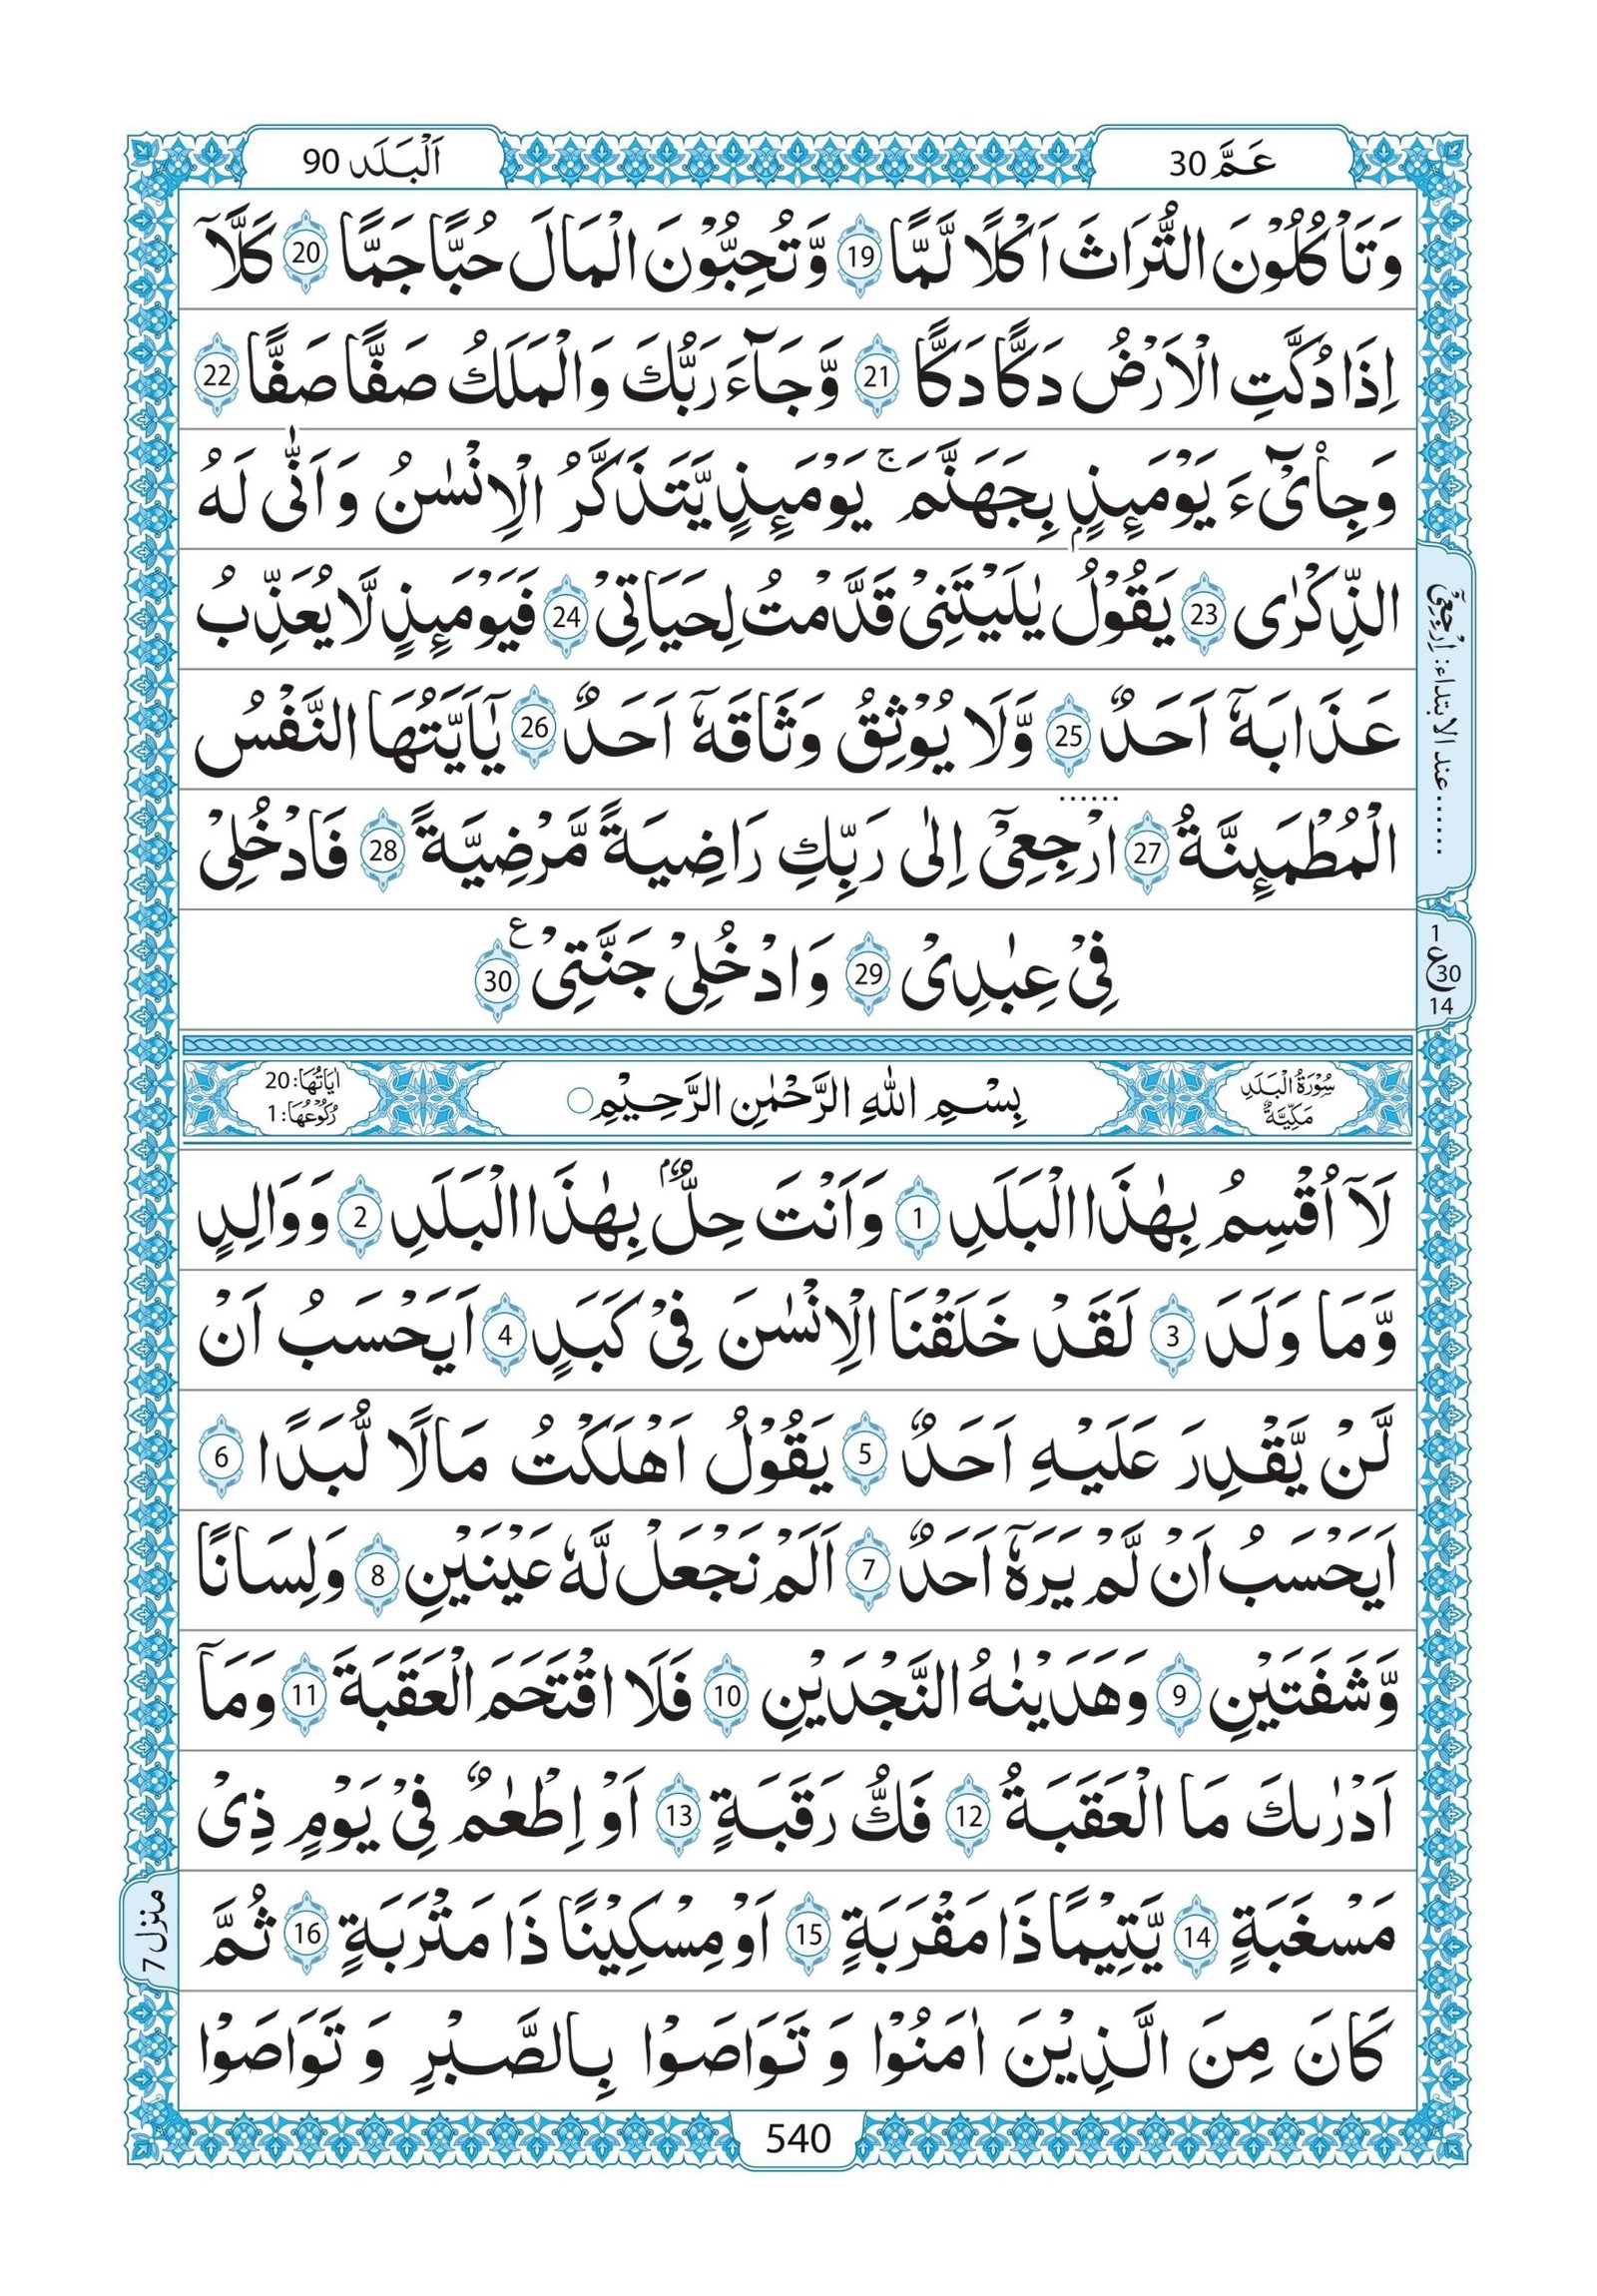 عَمَّ 30
اَلْبَلَد 90
وَتَاْكُلُوْنَ التُّرَاثَ اَكْلًا لَّمًّا 19 وَّتُحِبُّوْنَ الْمَالَ حُبًّا جَمًّا 20 كَلَّاۤ
اِذَا دُكَّتِ الْاَرْضُ دَكًّا دَكًّا 21 وَّجَآءَ رَبُّكَ وَالْمَلَكُ صَفًّا صَفًّا 22
وَجِایْٓءَ يَوْمَئِذٍۭ بِجَهَنَّمَ ۚ يَوْمَئِذٍ يَّتَذَكَّرُ الْاِنْسٰنُ وَاَنّٰى لَهُ
الذِّكْرٰى 23 يَقُوْلُ يٰلَيْتَنِىْ قَدَّمْتُ لِحَيَاتِىْ 24 فَيَوْمَئِذٍ لَّا يُعَذِّبُ
عَذَابَهٗۤ اَحَدٌ 25 وَّلَا يُوْثِقُ وَثَاقَهٗۤ اَحَدٌ 26 يٰۤاَيَّتُهَا النَّفْسُ
الْمُطْمَئِنَّةُ 27 ارْجِعِىْۤ اِلٰى رَبِّكِ رَاضِيَةً مَّرْضِيَّةً 28 فَادْخُلِىْ
فِىْ عِبٰدِىْ 29 وَادْخُلِىْ جَنَّتِىْ ع 30
...... عند الابتداء: اِرْجِعِىْۤ
1
ع 30
14
سُوْرَةُ الْبَلَدِ
مَكِّيَّةٌ
بِسْمِ اللهِ الرَّحْمٰنِ الرَّحِيْمِ
اٰيَاتُهَا: 20
رُكُوْعُهَا: 1
لَاۤ اُقْسِمُ بِهٰذَا الْبَلَدِ 1 وَاَنْتَ حِلٌّۢ بِهٰذَا الْبَلَدِ 2 وَوَالِدٍ
وَّمَا وَلَدَ 3 لَقَدْ خَلَقْنَا الْاِنْسٰنَ فِىْ كَبَدٍ 4 اَيَحْسَبُ اَنْ
لَّنْ يَّقْدِرَ عَلَيْهِ اَحَدٌ 5 يَقُوْلُ اَهْلَكْتُ مَالًا لُّبَدًا 6
اَيَحْسَبُ اَنْ لَّمْ يَرَهٗۤ اَحَدٌ 7 اَلَمْ نَجْعَلْ لَّهٗ عَيْنَيْنِ 8 وَلِسَانًا
وَّشَفَتَيْنِ 9 وَهَدَيْنٰهُ النَّجْدَيْنِ 10 فَلَا اقْتَحَمَ الْعَقَبَةَ 11 وَمَاۤ
اَدْرٰىكَ مَا الْعَقَبَةُ 12 فَكُّ رَقَبَةٍ 13 اَوْ اِطْعٰمٌ فِىْ يَوْمٍ ذِىْ
مَسْغَبَةٍ 14 يَّتِيْمًا ذَا مَقْرَبَةٍ 15 اَوْ مِسْكِيْنًا ذَا مَتْرَبَةٍ 16 ثُمَّ
كَانَ مِنَ الَّذِيْنَ اٰمَنُوْا وَتَوَاصَوْا بِالصَّبْرِ وَتَوَاصَوْا
منزل 7
540